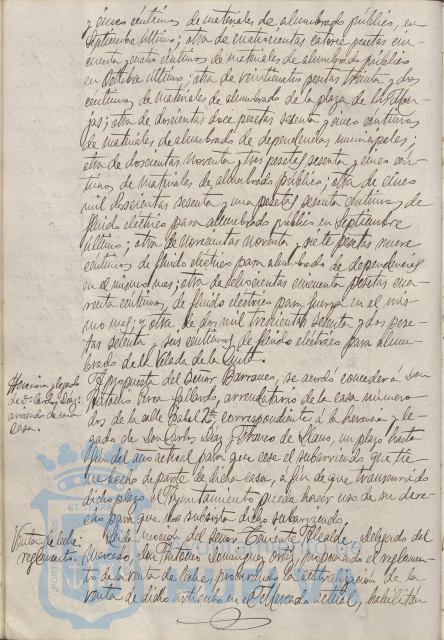 y cinco céntimos de materiales de alumbrado público, en
Septiembre último; otra de cuatrocientas catorce pesetas cin
cuenta y cuatro céntimos de materiales de alumbrado público
en Octubre último; otra de veinticuatro pesetas treinta y dos
céntimos, de materiales de alumbrado de la plaza de las Mon
jas; otra de doscientas doce pesetas sesenta y cinco céntimos
de materiales de alumbrado de dependencias municipales;
otra de doscientas noventa y tres pesetas sesenta y cinco cén
timos de materiales de alumbrado público; otra de cinco
mil doscientas sesenta y una pesetas sesenta céntimos, de
fluido eléctrico para alumbrado público en Septiembre
último; otra de novecientas noventa y siete pesetas nueve
céntimos de fluido eléctrico para alumbrado de dependencias
en el mismo mes; otra de ochocientas cincuenta pesetas cua
renta céntimos, de fluido eléctrico para fuerza en el mis
mo mes; y otra de dos mil trescientas setenta y dos pese
tas setenta y seis céntimos de fluido eléctrico para alum
brado de la Velada de la Cinta.
Herencia y legado
de Dn. Carlos Díaz:
arriendo de una
Casa.
A propuesta del Señor Barranco, se acordó conceder á Don
Gallardo, arrendatario de la casa número
dos de la calle Isabel 2ª, correspondiente á la herencia y le
gado de Don Carlos Díaz y Franco de Llanos, un plazo hasta
fin del año actual para que cese el subarriendo que tie
ne hecho de parte de dicha casa, á fin de que transcurrido
dicho plazo el Ayuntamiento pueda hacer uso de su dere
cho para que no subsista dicho subarriendo.
Venta de leche:
reglamento.
Leída moción del Señor Teniente Alcalde, delegado del
Mercado, Don Domínguez Ortiz, proponiendo el reglamen
to de la venta de leche, procurando la centralización de la
venta de dicho artículo en el Mercado actual, habilitán